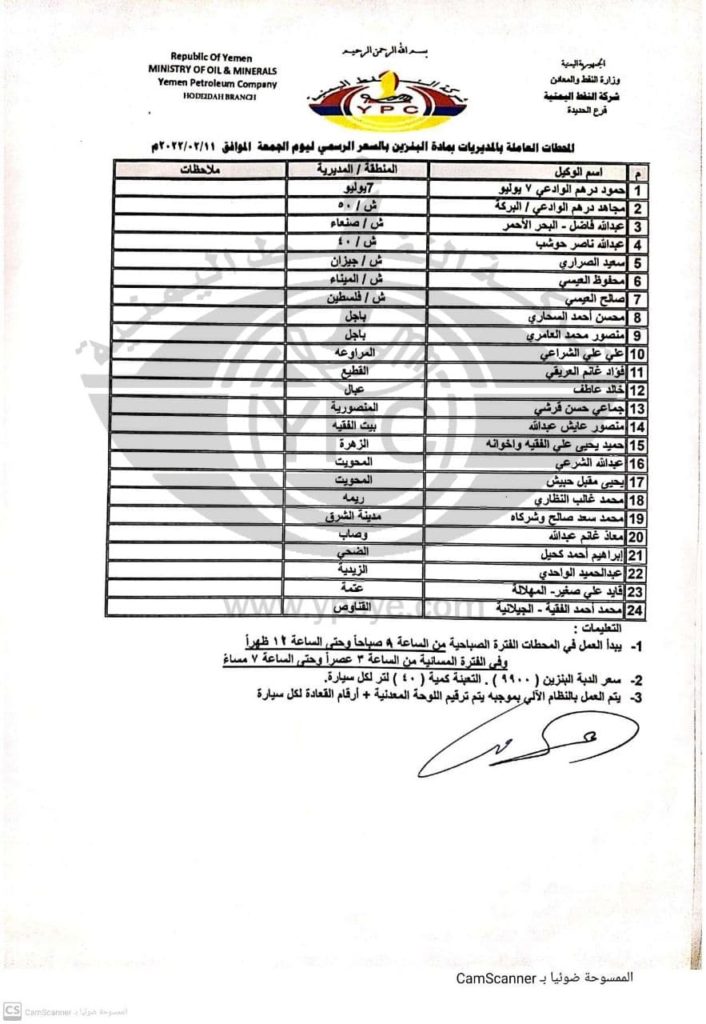 بسم الله الرحمن الرحيم
Republic Of Yemen
MINISTRY OF OIL & MINERALS
Yemen Petroleum Company
HODEIDAH BRANCH
الجمهورية اليمنية
وزارة النفط والمعادن
شركة النفط اليمنية
فرع الحديدة
YPC
المحطات العاملة بالمديريات بمادة البنزين بالسعر الرسمي ليوم الجمعة الموافق ٢٠٢٢/٠٢/١١م
م اسم الوكيل المنطقة / المديرية ملاحظات
1 حمود درهم الوادعي ٧ يوليو 7يوليو
2 مجاهد درهم الوادعي / البركة ش / ٥٠
3 عبدالله فاضل - البحر الأحمر ش / صنعاء
4 عبدالله ناصر حوشب ش / ٤٠
5 سعيد الصراري ش / جيزان
6 محفوظ العيسي ش / الميناء
7 صالح العيسي ش / فلسطين
8 محسن أحمد السحاري باجل
9 منصور محمد العامري باجل
10 علي علي الشراعي المراوعه
11 فؤاد غانم العريقي القطيع
12 خالد عاطف عبال
13 جماعي حسن قرشي المنصورية
14 منصور عايش عبدالله بيت الفقيه
15 حميد يحيى علي الفقيه واخوانه الزهرة
16 عبدالله الشرعي المحويت
17 يحيى مقبل حبيش المحويت
18 محمد غالب النظاري ريمه
19 محمد سعد صالح وشركاه مدينة الشرق
20 معاذ غانم عبدالله وصاب
21 إبراهيم أحمد كحيل الضحي
22 عبدالحميد الواحدي الزيدية
23 قايد علي صغير- المهلالة عتمة
24 محمد أحمد الفقية - الجيلانية القناوص
التعليمات :
1- يبدأ العمل في المحطات الفترة الصباحية من الساعة ٨ صباحاً وحتى الساعة ١٢ ظهراً
وفي الفترة المسائية من الساعة ٣ عصراً وحتى الساعة ٧ مساءً
2- سعر الدبة البنزين ( ٩٩٠٠ ) . التعبئة كمية ( ٤٠ ) لتر لكل سيارة.
3- يتم العمل بالنظام الآلي بموجبه يتم ترقيم اللوحة المعدنية + أرقام القعادة لكل سيارة
الممسوحة ضوئيا بـ CamScanner
CS CamScanner الممسوحة ضوئيا بـ